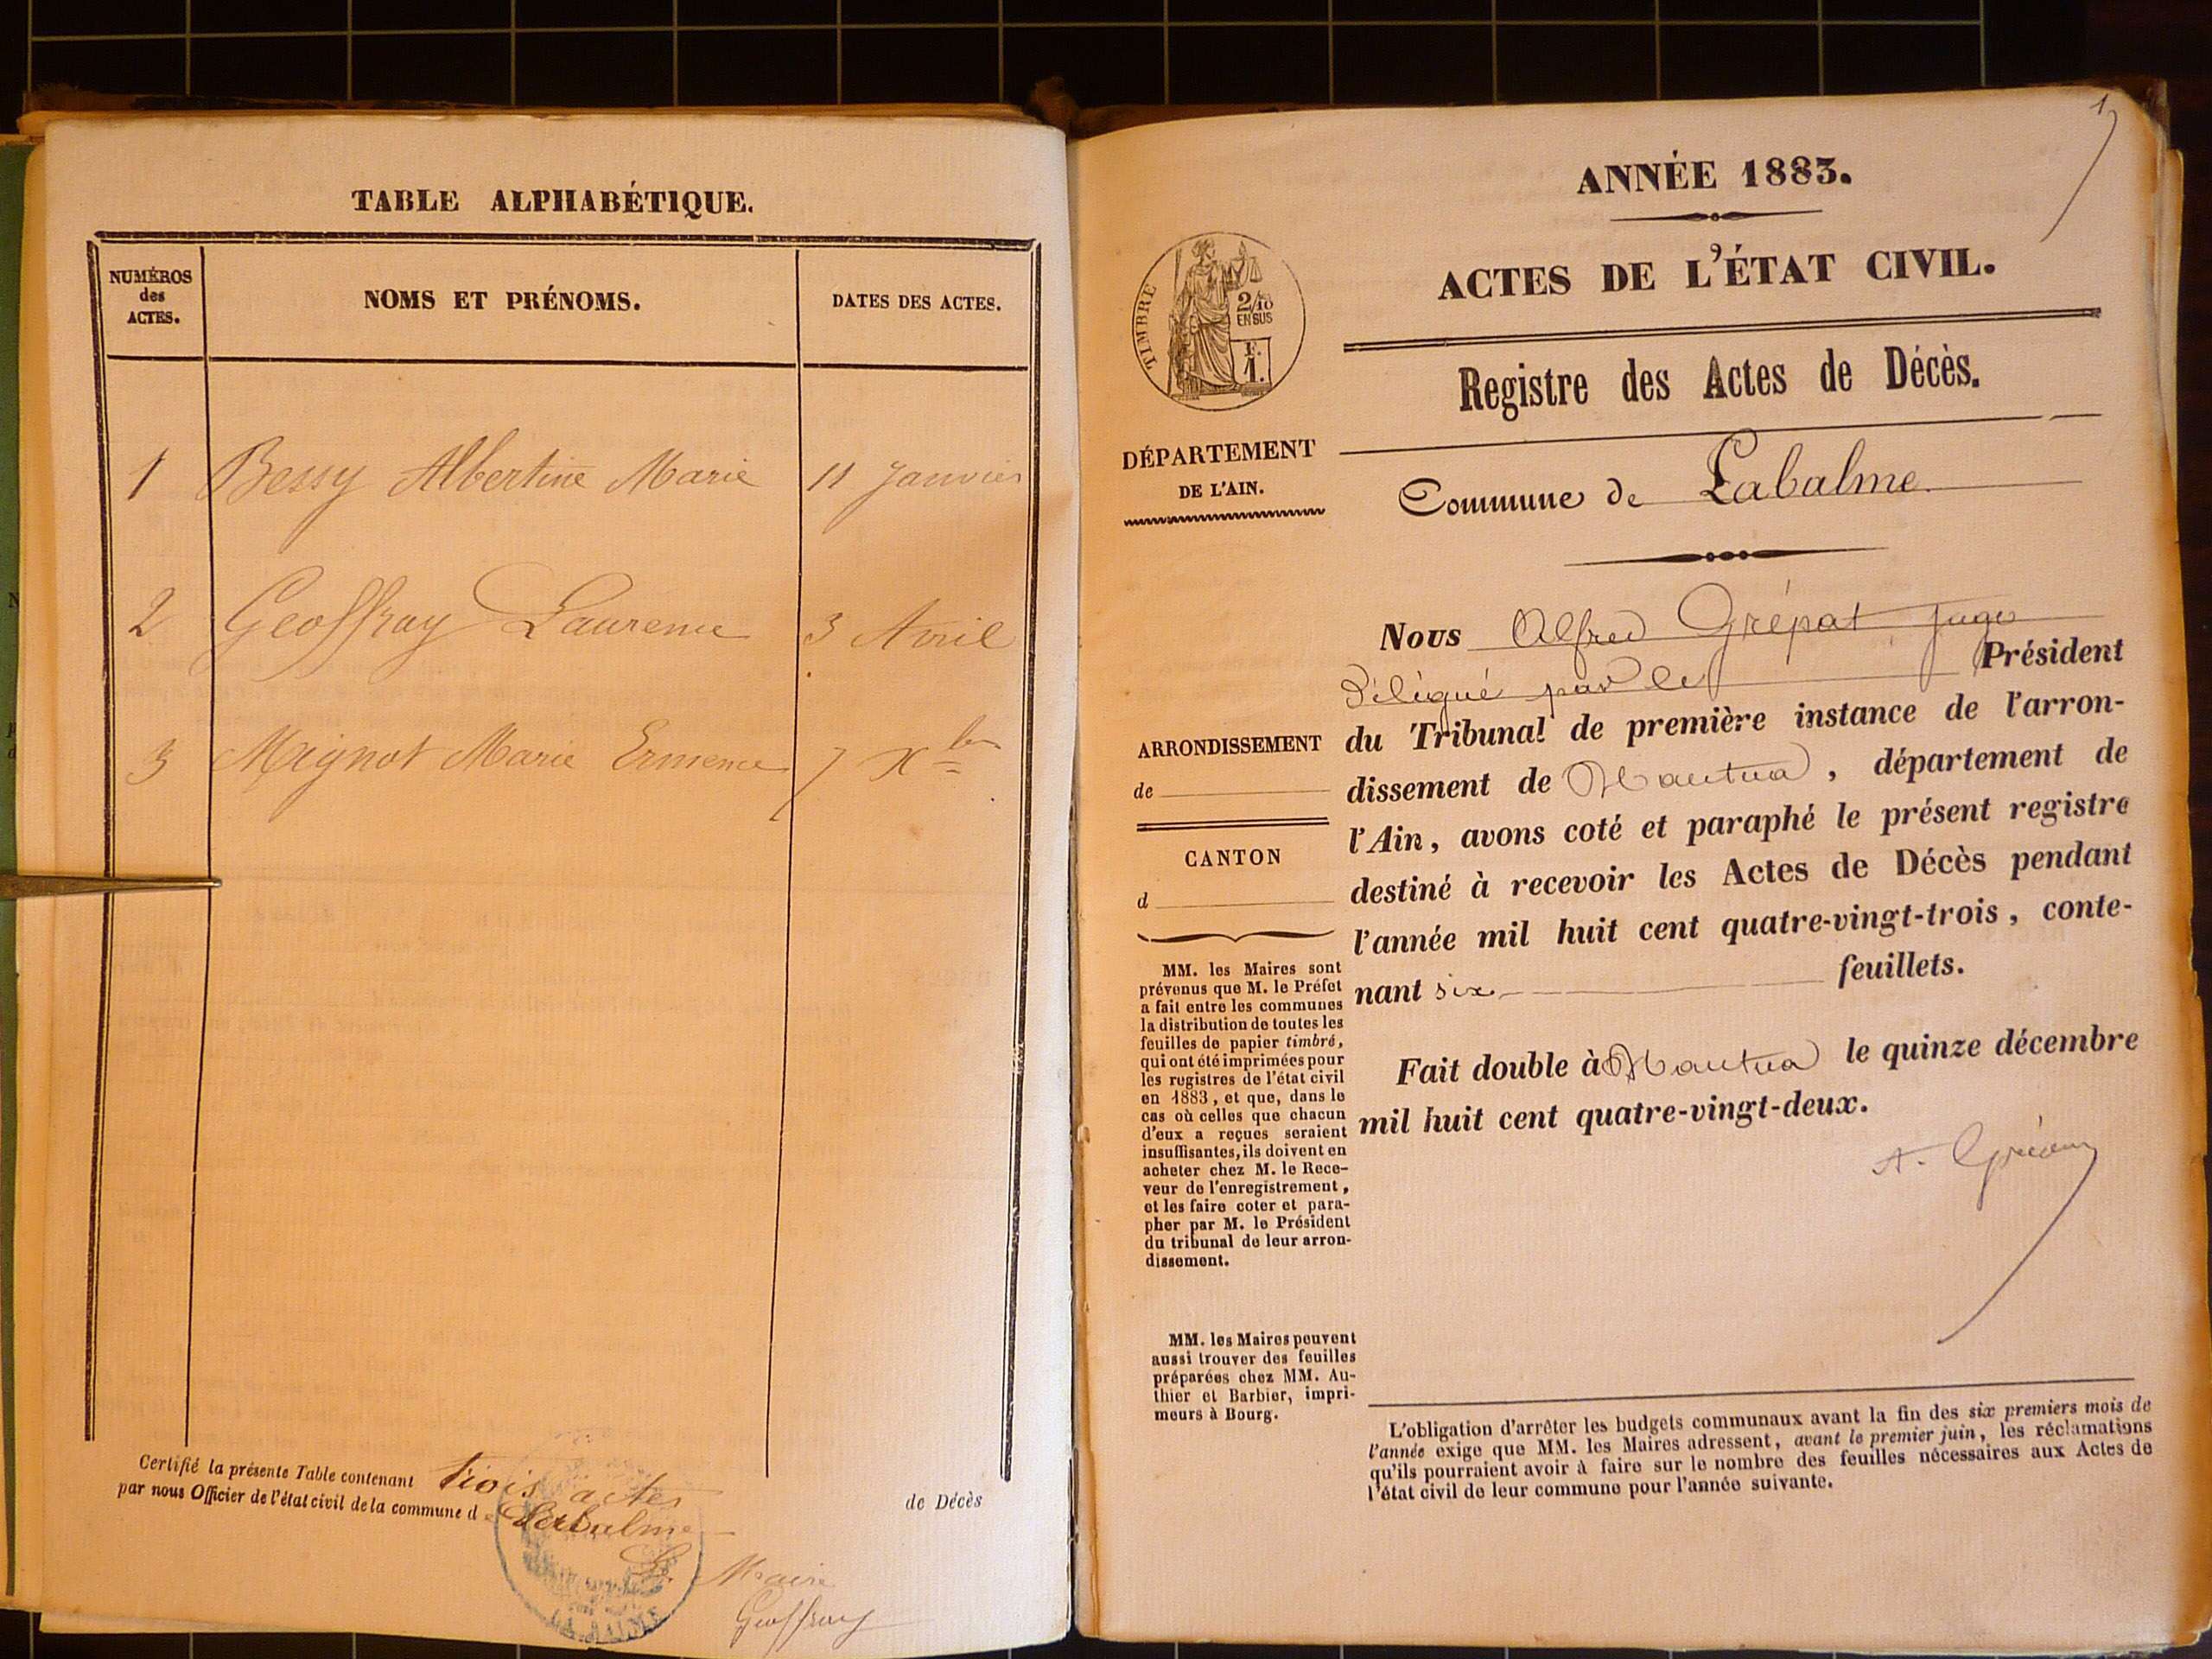 TABLE ALPHABÉTIQUE.
NUMÉROS
des
ACTES.
NOMS ET PRÉNOMS.
DATES DES ACTES.
1 Bessy Albertine Marie 11 Janvier
2 Geoffray Laurence 3 Avril
3 Mignot Marie Ermence 7 Xbre
Certifié la présente Table contenant trois actes de Décès
par nous Officier de l'état civil de la commune de Labalme
Le Maire
Geoffray
LA BALME
1
ANNÉE 1883.
ACTES DE L'ÉTAT CIVIL.
TIMBRE
2/10
EN SUS
F.
1.
Registre des Actes de Décès.
DÉPARTEMENT
DE L'AIN.
Commune de Labalme
Nous Alfred Grépat Juge
Délégué par le Président
du Tribunal de première instance de l'arron-
dissement de Nantua, département de
l'Ain, avons coté et paraphé le présent registre
destiné à recevoir les Actes de Décès pendant
l'année mil huit cent quatre-vingt-trois, conte-
nant six feuillets.
Fait double à Nantua le quinze décembre
mil huit cent quatre-vingt-deux.
A.
ARRONDISSEMENT
de
CANTON
d
MM. les Maires sont
prévenus que M. le Préfet
a fait entre les communes
la distribution de toutes les
feuilles de papier timbré,
qui ont été imprimées pour
les registres de l'état civil
en 1883, et que, dans le
cas où celles que chacun
d'eux a reçues seraient
insuffisantes, ils doivent en
acheter chez M. le Rece-
veur de l'enregistrement,
et les faire coter et para-
pher par M. le Président
du tribunal de leur arron-
dissement.
MM. les Maires peuvent
aussi trouver des feuilles
préparées chez MM. Au-
thier et Barbier, impri-
meurs à Bourg.
L'obligation d'arrêter les budgets communaux avant la fin des six premiers mois de
l'année exige que MM. les Maires adressent, avant le premier juin, les réclamations
qu'ils pourraient avoir à faire sur le nombre des feuilles nécessaires aux Actes de
l'état civil de leur commune pour l'année suivante.